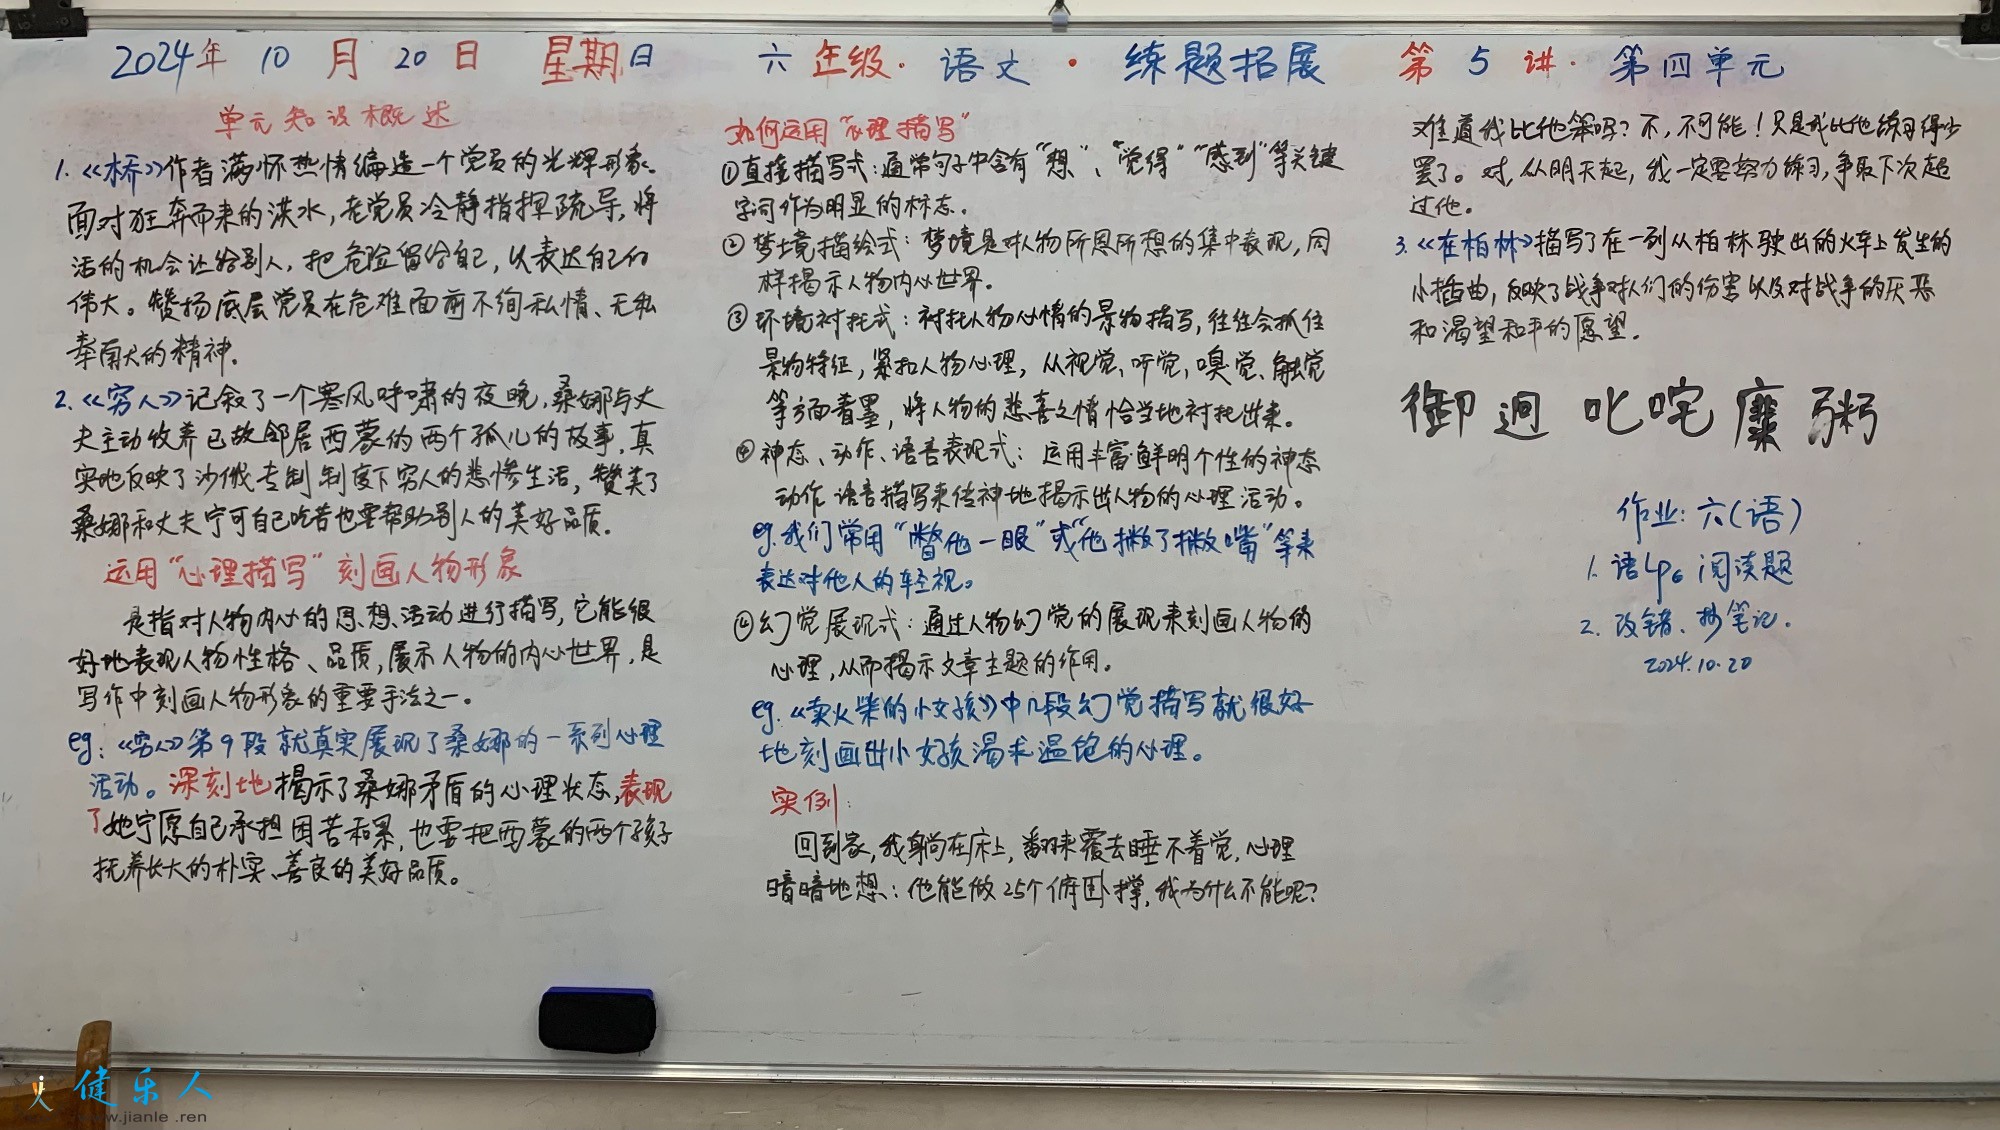 2024年 10 月 20 日 星期日 六年级·语文·练题拓展 第5讲·第四单元
单元知识概述
1.《桥》作者满怀热情编造一个党员的光辉形象。
面对狂奔而来的洪水，老党员冷静指挥疏导，将
活的机会让给别人，把危险留给自己，以表达自己的
伟大。赞扬底层党员在危难面前不徇私情、无私
奉献的精神。
2.《穷人》记叙了一个寒风呼啸的夜晚，桑娜与丈
夫主动收养已故邻居西蒙的两个孤儿的故事，真
实地反映了沙俄专制制度下穷人的悲惨生活，赞美了
桑娜和丈夫宁可自己吃苦也要帮助别人的美好品质。
运用“心理描写”刻画人物形象
是指对人物内心的思想活动进行描写，它能很
好地表现人物性格、品质，展示人物的内心世界，是
写作中刻画人物形象的重要手法之一。
eg：《穷人》第9段就真实展现了桑娜的一系列心理
活动。深刻地揭示了桑娜矛盾的心理状态，表现
了她宁愿自己承担困苦和累，也要把西蒙的两个孩子
抚养长大的朴实、善良的美好品质。
如何运用“心理描写”
①直接描写式：通常句子中含有“想”、“觉得”“感到”等关键
字词作为明显的标志。
②梦境描绘式：梦境是对人物所思所想的集中表现，同
样揭示人物内心世界。
③环境衬托式：衬托人物心情的景物描写，往往会抓住
景物特征，紧扣人物心理，从视觉、听觉、嗅觉、触觉
等方面着墨，将人物的悲喜之情恰当地衬托出来。
④神态、动作、语言表现式：运用丰富鲜明个性的神态
动作语言描写来传神地揭示出人物的心理活动。
eg.我们常用“瞥他一眼”或“他撇了撇嘴”等来
表达对他人的轻视。
④幻觉展现式：通过人物幻觉的展现来刻画人物的
心理，从而揭示文章主题的作用。
eg.《卖火柴的小女孩》中几段幻觉描写就很好
地刻画出小女孩渴求温饱的心理。
实例：
回到家，我躺在床上，翻来覆去睡不着觉，心理
暗暗地想：他能做25个俯卧撑，我为什么不能呢？
难道我比他笨吗？不，不可能！只是我比他练习得少
罢了。对，从明天起，我一定要努力练习，争取下次超
过他。
3.《在柏林》描写了在一列从柏林驶出的火车上发生的
小插曲，反映了战争对人们的伤害以及对战争的厌恶
和渴望和平的愿望。
御 迥 叱咤 糜粥
作业：六（语）
1. 语LP6 阅读题
2. 改错、抄笔记.
2024.10.20
健乐人
www.jianle.ren